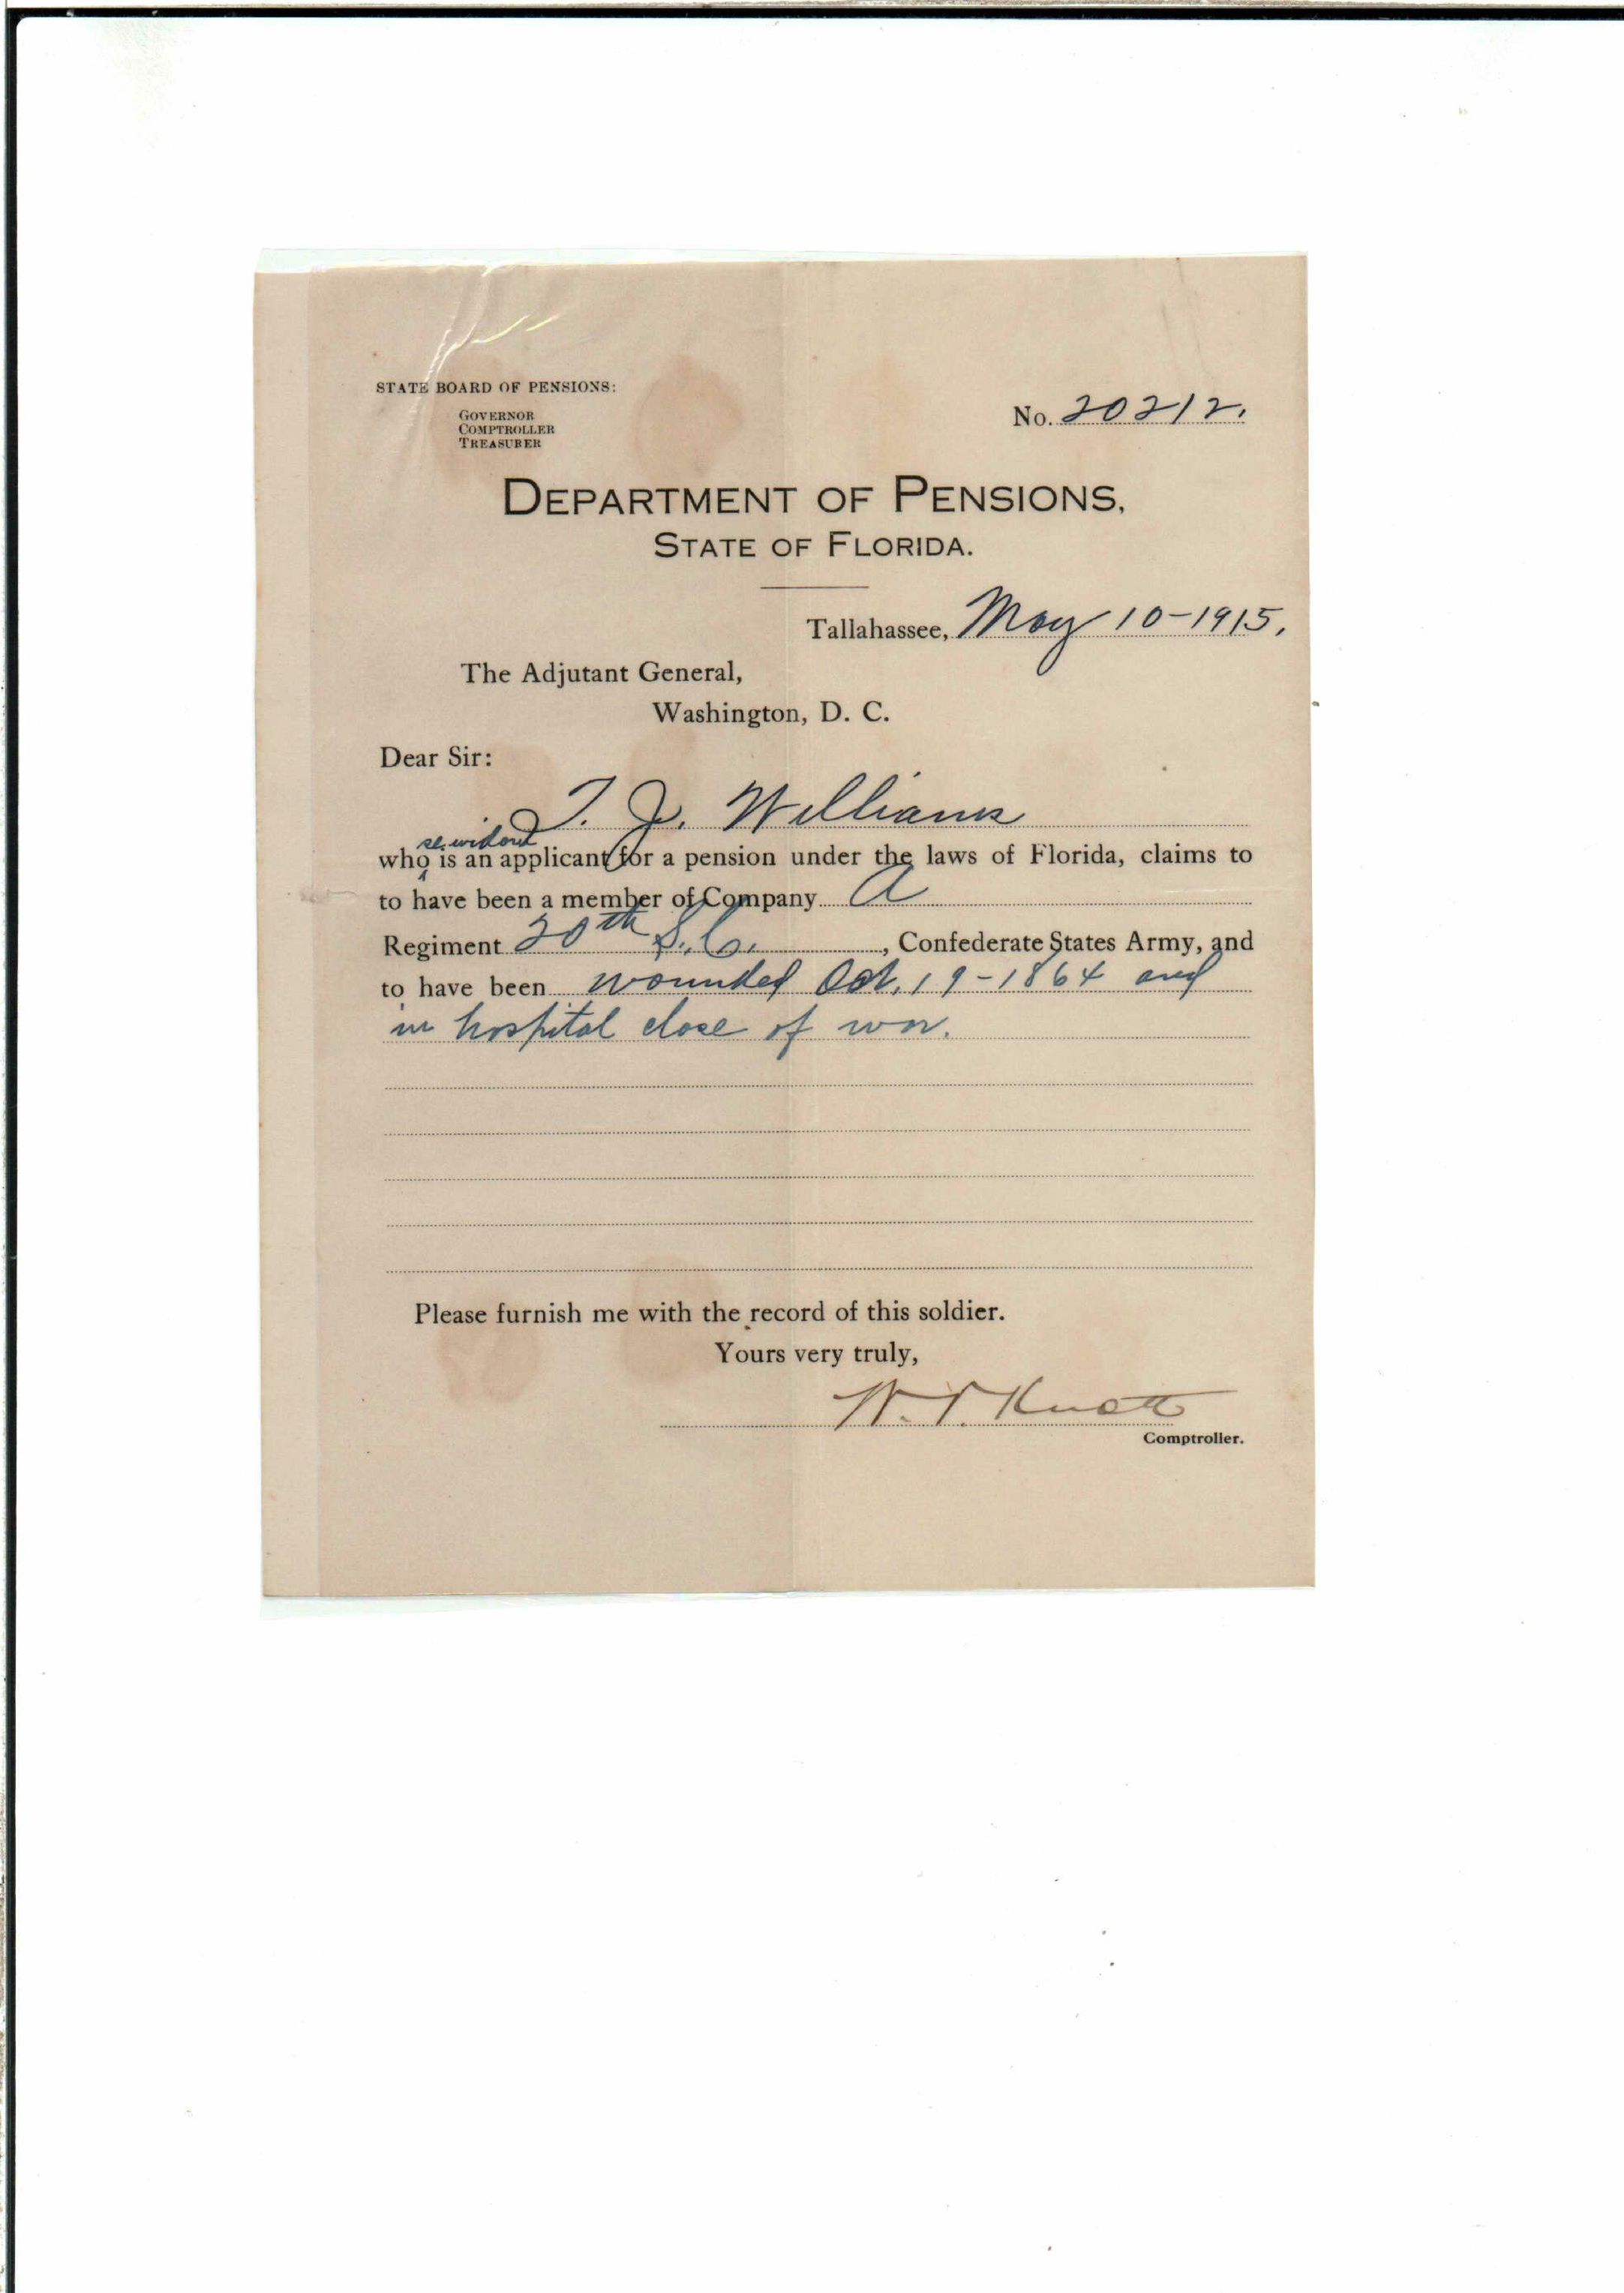 STATE BOARD OF PENSIONS:
GOVERNOR
COMPTROLLER
TREASURER
No. 20212.
DEPARTMENT OF PENSIONS,
STATE OF FLORIDA.
Tallahassee, May 10-1915.
The Adjutant General,
Washington, D. C.
Dear Sir:
T. J. Williams
widow
who is an applicant for a pension under the laws of Florida, claims to
to have been a member of Company A
Regiment 20th S.C. , Confederate States Army, and
to have been wounded Oct. 19-1864 and
in hospital close of war.
Please furnish me with the record of this soldier.
Yours very truly,
W. V. Knott
Comptroller.